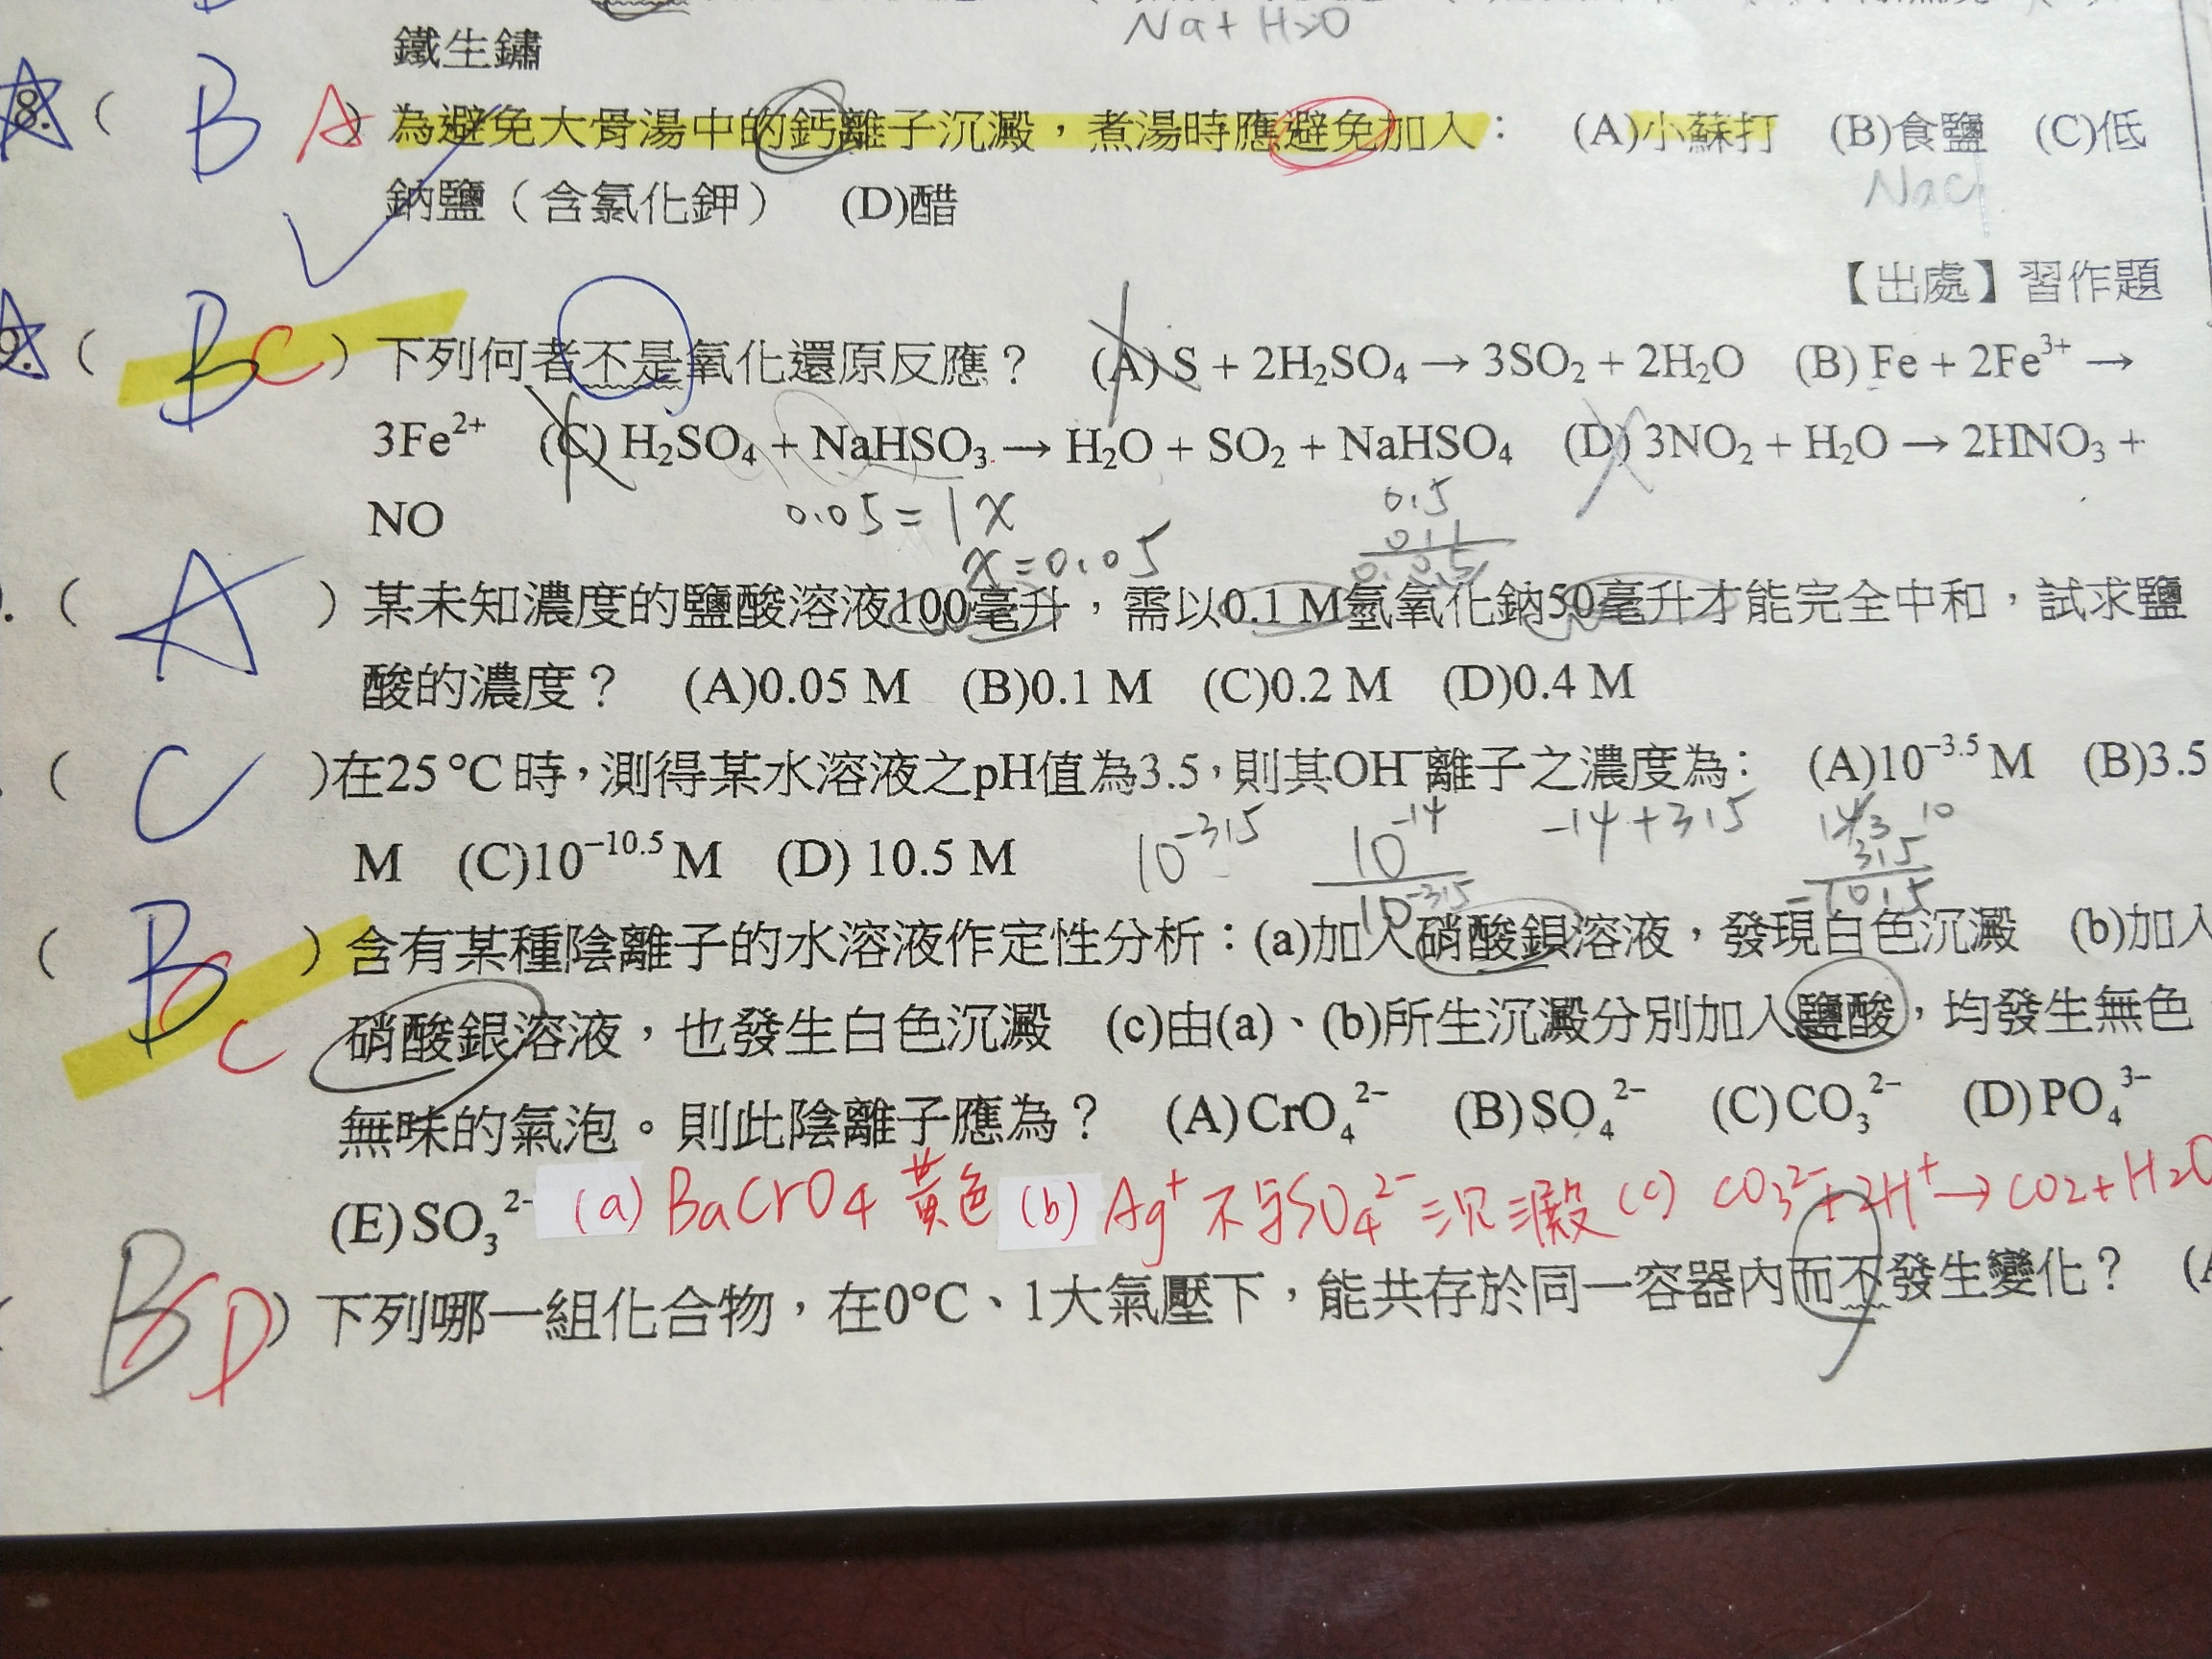 Na + H2O
鐵生鏽
8. ( B A ) 為避免大骨湯中的鈣離子沉澱，煮湯時應避免加入： (A)小蘇打 (B)食鹽 (C)低
NaCl
鈉鹽（含氯化鉀） (D)醋
【出處】習作題
9. ( B C ) 下列何者不是氧化還原反應？ (A) S + 2H₂SO₄ → 3SO₂ + 2H₂O (B) Fe + 2Fe³⁺ →
3Fe²⁺ (C) H₂SO₄ + NaHSO₃ → H₂O + SO₂ + NaHSO₄ (D) 3NO₂ + H₂O → 2HNO₃ +
NO
0.05 = 1x
x = 0.05
0.5
( A ) 某未知濃度的鹽酸溶液100毫升，需以0.1 M氫氧化鈉50毫升才能完全中和，試求鹽
酸的濃度？ (A)0.05 M (B)0.1 M (C)0.2 M (D)0.4 M
( C )在25 °C 時，測得某水溶液之pH值為3.5，則其OH⁻離子之濃度為： (A)10⁻³·⁵ M (B)3.5
M (C)10⁻¹⁰·⁵ M (D) 10.5 M
10⁻³·⁵ 10⁻¹⁴ -14+3.5
10⁻³·⁵ -10.5
( B C C ) 含有某種陰離子的水溶液作定性分析：(a)加入硝酸鋇溶液，發現白色沉澱 (b)加入
硝酸銀溶液，也發生白色沉澱 (c)由(a)、(b)所生沉澱分別加入鹽酸，均發生無色
無味的氣泡。則此陰離子應為？ (A)CrO₄²⁻ (B)SO₄²⁻ (C)CO₃²⁻ (D)PO₄³⁻
(E)SO₃²⁻ (a) BaCrO4 黃色 (b) Ag⁺ 不與SO₄²⁻ 沉澱 (c) CO₃²⁻+2H⁺→CO2+H2O
( B D ) 下列哪一組化合物，在0°C、1大氣壓下，能共存於同一容器內而不發生變化？ (A